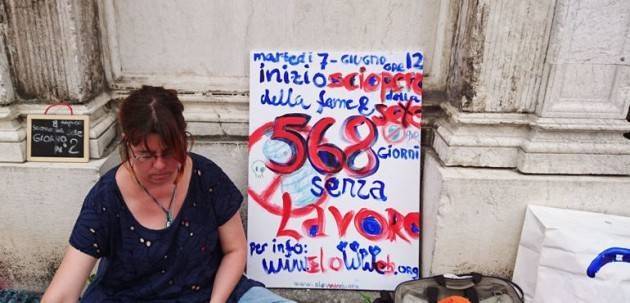 GIORNO
N° 2
martedì 7- GIUGNO ORE 12
inizio sciopero
della fame e della
sete
568
GIORNI
senza
LAVORO
per info:
www.slowweb.org